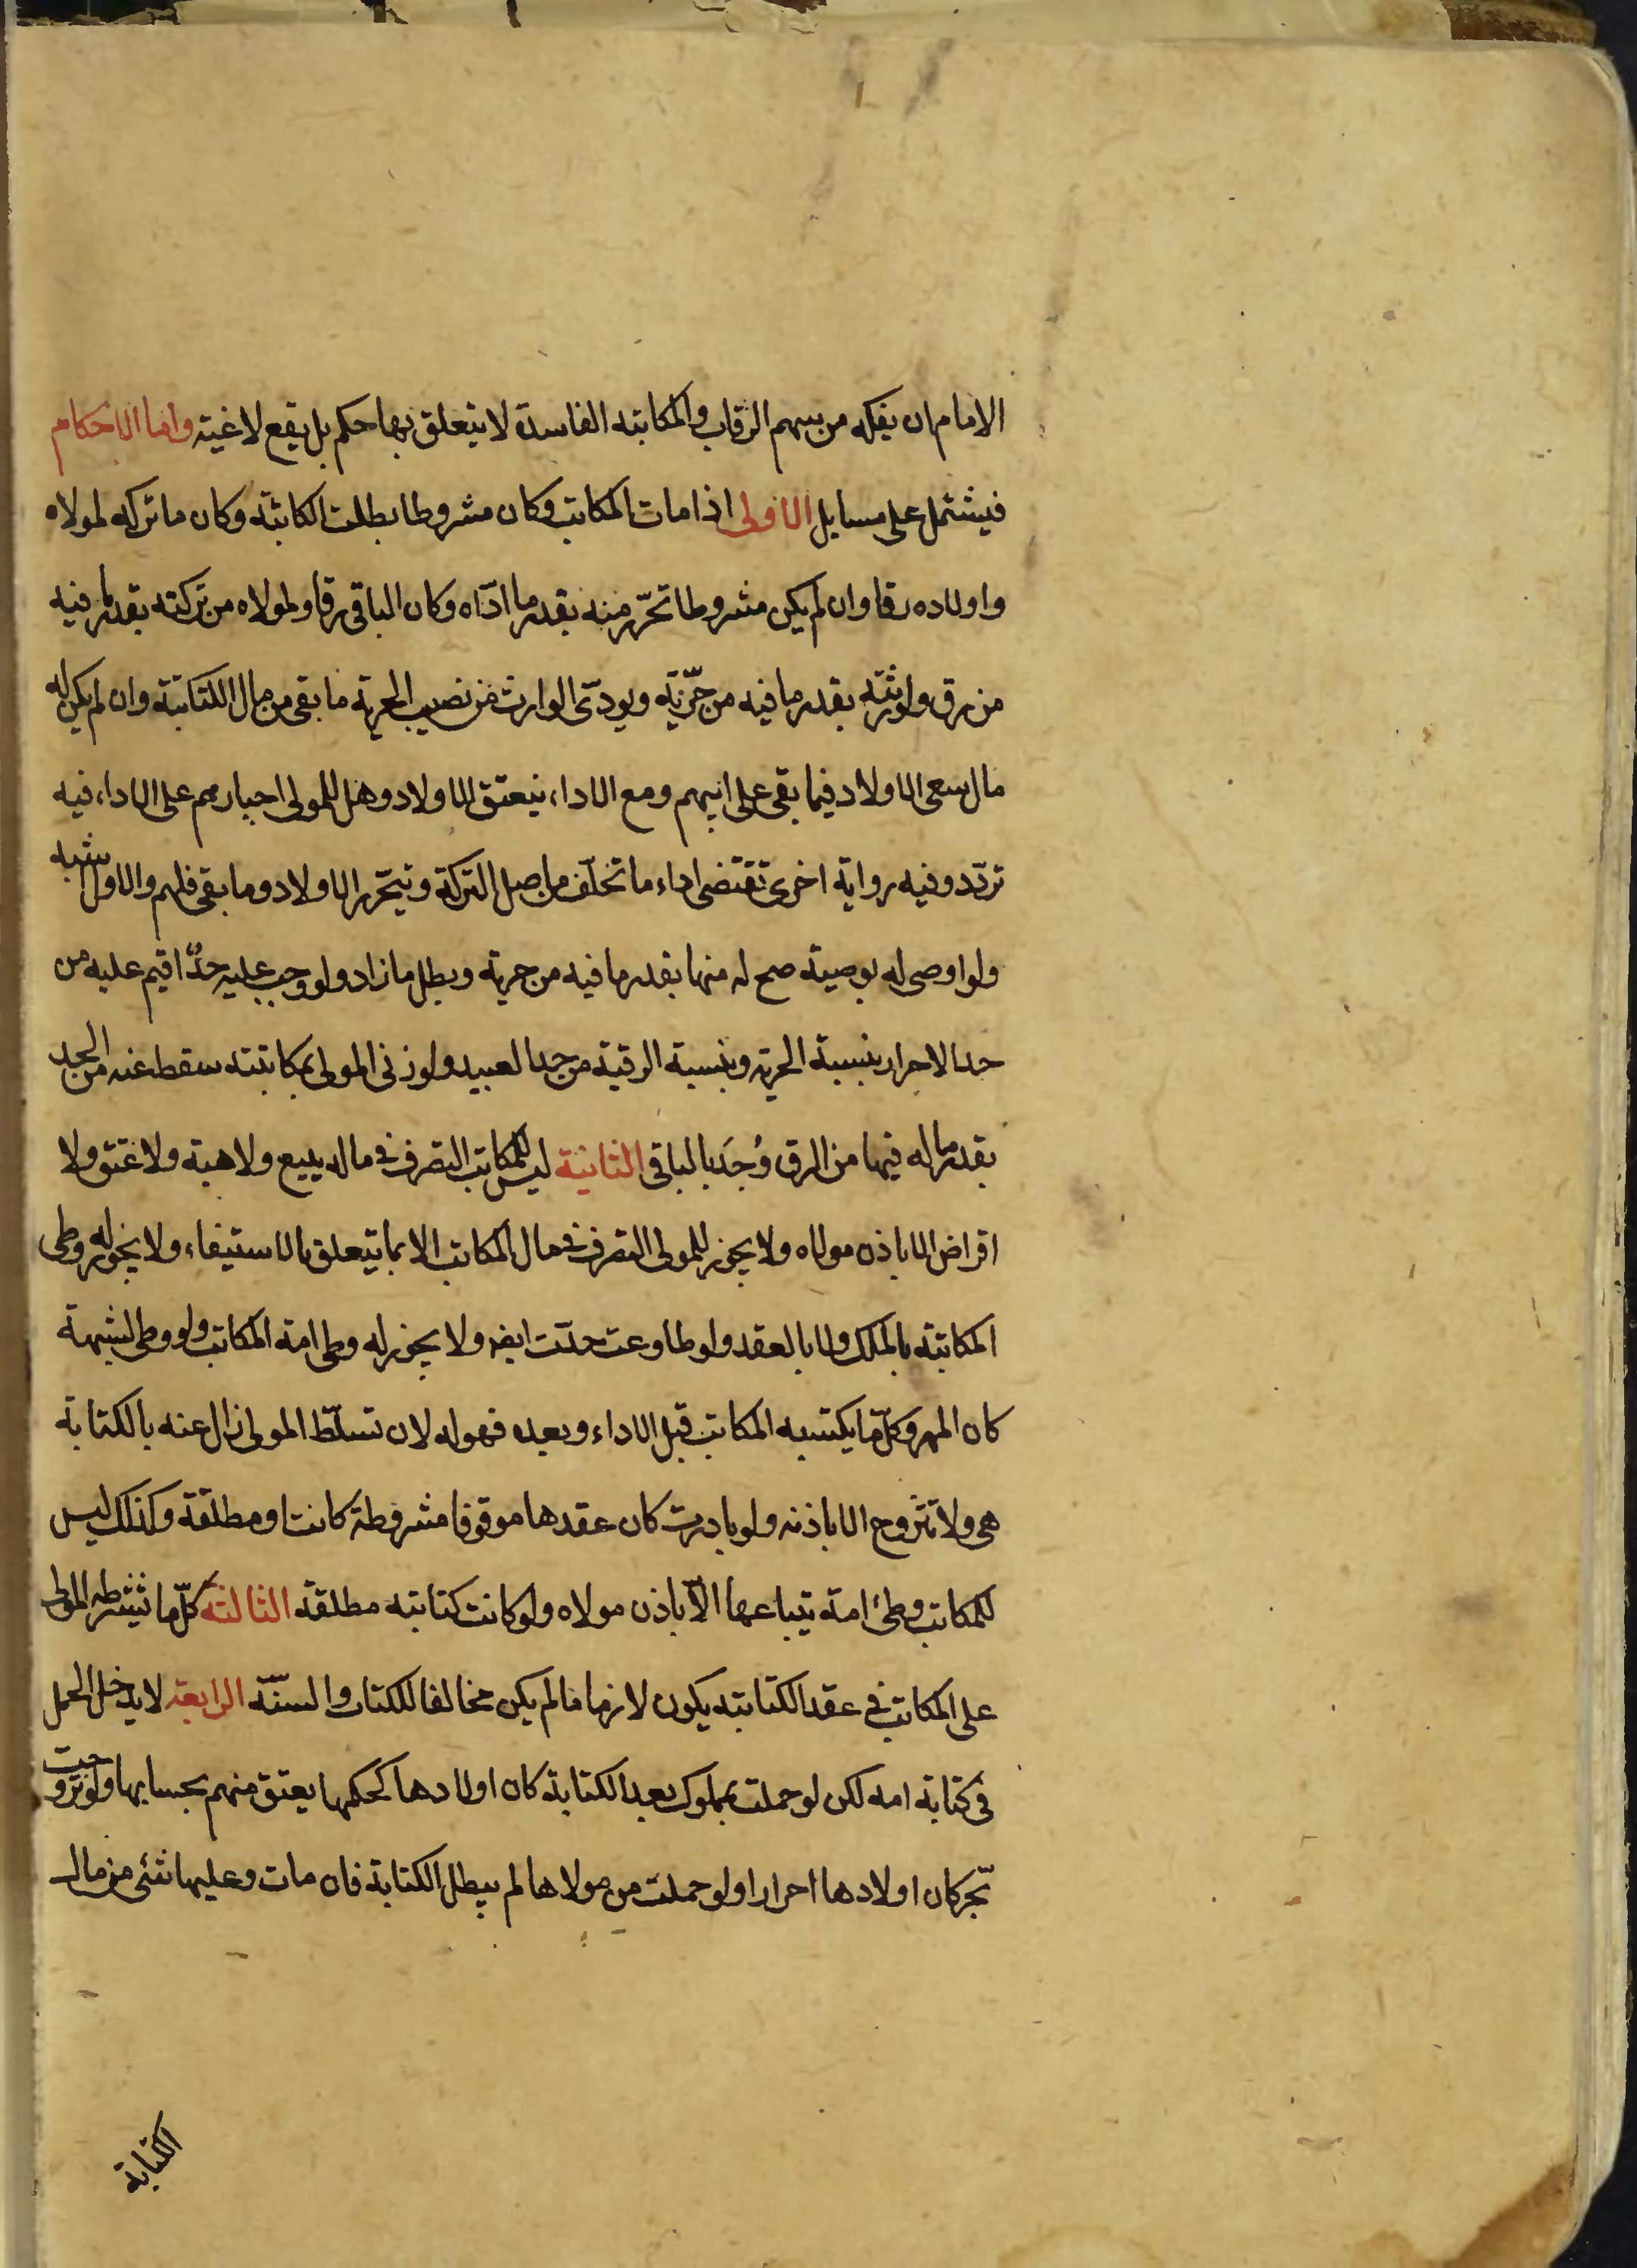 الامام ان يفكه من سهم الرقاب والمكاتبة الفاسدة لا يتعلق بها حكم بل يقع لاغيته واما الاحكام
فيشتمل على مسايل الاولى اذا مات المكاتب وكان مشروطا بطلت الكتابة وكان ما تركه لمولاه
واولاده رقا وان لم يكن مشروطا تحرّر منه بقدر ما ادّاه وكان الباقى رقا ولمولاه من تركته بقدر ما فيه
من رق ولورثته بقدر ما فيه من حرّيّة ويودّى الوارث من نصيب الحرية ما بقى من مال الكتابة وان لم يكن له
مال سعى الاولاد فيما بقى على ابيهم ومع الاداء ينعتق الاولاد وهل للمولى اجبارهم على الاداء فيه
تردّد وفيه رواية اخرى تقتضى اداء ما تخلّف من اصل التركة ويتحرر الاولاد وما بقى فلهم والاول اشبه
ولو اوصى له بوصية صح له منها بقدر ما فيه من حرية وبطل ما زاد ولو وجب عليه حدّ اقيم عليه من
حد الاحرار بنسبة الحرية وبنسبة الرقية من حد العبيد ولو زنى المولى بمكاتبته سقط عنه من الحد
بقدر ما له فيها من الرق وُحدَ بالباقى الثانية ليس للمكاتب التصرف فى ماله ببيع ولا هبة ولا عتق ولا
اقراض الا باذن مولاه ولا يجوز للمولى التصرف فى مال المكاتب الا بما يتعلق بالاستيفاء ولا يجوز له وطى
المكاتبة بالملك ولا بالعقد ولو طاوعت حدّت ايضا ولا يجوز له وطى امة المكاتب ولو وطى لشبهة
كان المهر وكلّ ما يكتسبه المكاتب قبل الاداء وبعده فهو له لان تسلّط المولى زال عنه بالكتابة
هى ولا تتزوج الا باذنه ولو بادرت كان عقدها موقوفا مشروطة كانت او مطلقة وكذلك ليس
للمكاتب وطئ امة يبتاعها الّا باذن مولاه ولو كانت كتابته مطلقة الثالثة كلّ ما يشترطه المولى
على المكاتب فى عقد الكتابة يكون لازما ما لم يكن مخالفا للكتاب والسنّة الرابعة لا يدخل الحمل
فى كتابة امه لكن لو حملت بمملوك بعد الكتابة كان اولادها كحكمها يعتق منهم بحسابها ولو تزوجت
بحّر كان اولادها احرارا ولو حملت من مولاها لم يبطل الكتابة فان مات وعليها شئى من مال
الكتابة